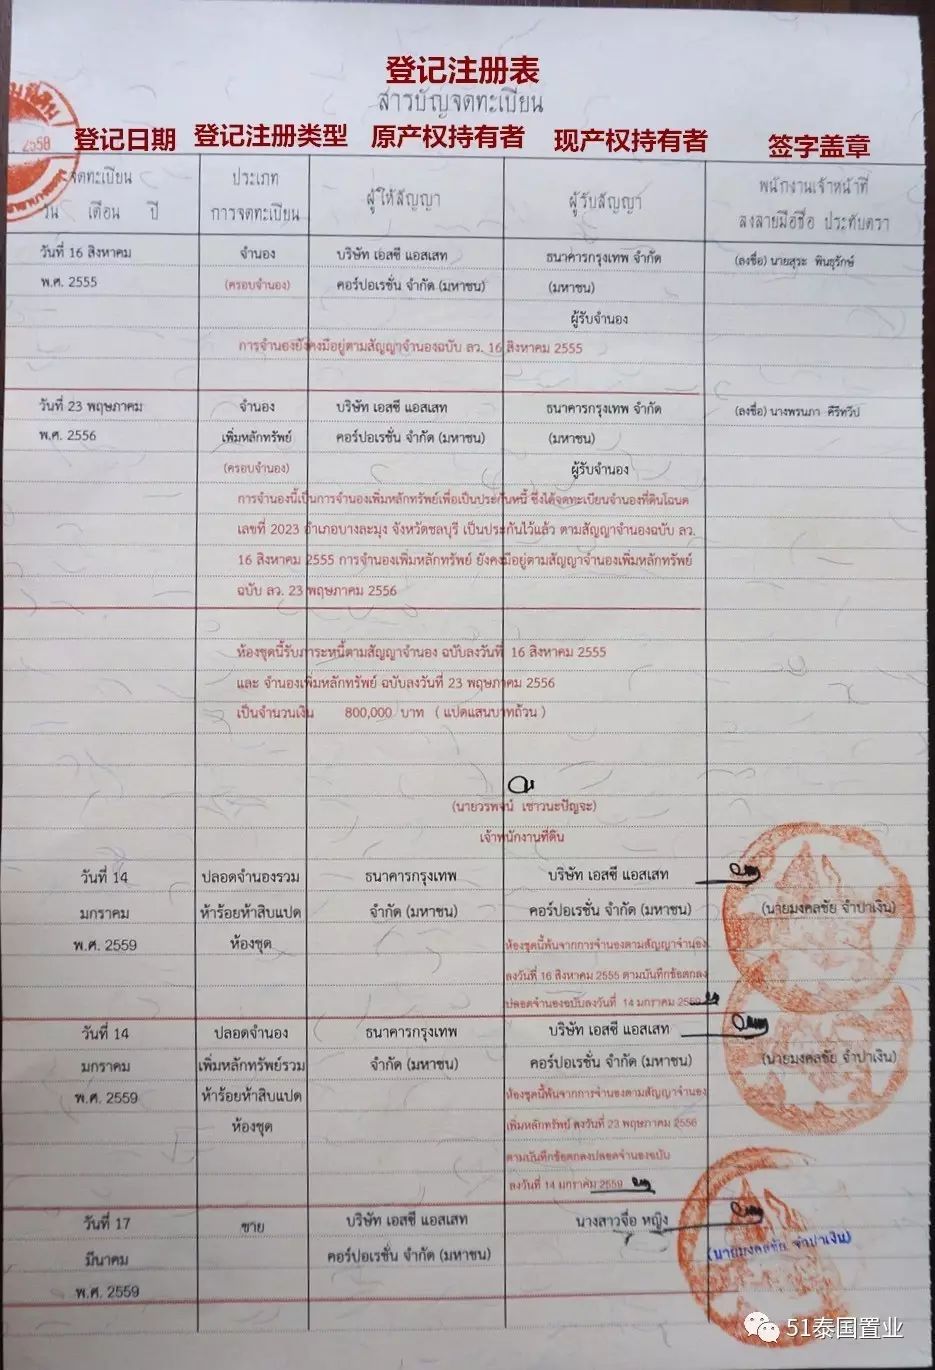 登记注册表
สารบัญจดทะเบียน
登记日期 登记注册类型 原产权持有者 现产权持有者 签字盖章
2558
จดทะเบียน
วัน เดือน ปี
ประเภท
การจดทะเบียน
ผู้ให้สัญญา
ผู้รับสัญญา
พนักงานเจ้าหน้าที่
ลงลายมือชื่อ ประทับตรา
วันที่ 16 สิงหาคม จำนอง บริษัท เอสซี แอสเสท ธนาคารกรุงเทพ จำกัด (ลงชื่อ) นายสุระ พินธุรักษ์
พ.ศ. 2555 (ครอบจำนอง) คอร์ปอเรชั่น จำกัด (มหาชน) (มหาชน)
ผู้รับจำนอง
การจำนองยังคงมีอยู่ตามสัญญาจำนองฉบับ ลว. 16 สิงหาคม 2555
วันที่ 23 พฤษภาคม จำนอง บริษัท เอสซี แอสเสท ธนาคารกรุงเทพ จำกัด (ลงชื่อ) นางพรนภา คีรีทวีป
พ.ศ. 2556 เพิ่มหลักทรัพย์ คอร์ปอเรชั่น จำกัด (มหาชน) (มหาชน)
(ครอบจำนอง) ผู้รับจำนอง
การจำนองนี้เป็นการจำนองเพิ่มหลักทรัพย์เพื่อเป็นประกันหนี้ ซึ่งได้จดทะเบียนจำนองที่ดินโฉนด
เลขที่ 2023 อำเภอบางละมุง จังหวัดชลบุรี เป็นประกันไว้แล้ว ตามสัญญาจำนองฉบับ ลว.
16 สิงหาคม 2555 การจำนองเพิ่มหลักทรัพย์ ยังคงมีอยู่ตามสัญญาจำนองเพิ่มหลักทรัพย์
ฉบับ ลว. 23 พฤษภาคม 2556
ห้องชุดนี้รับภาระหนี้ตามสัญญาจำนอง ฉบับลงวันที่ 16 สิงหาคม 2555
และ จำนองเพิ่มหลักทรัพย์ ฉบับลงวันที่ 23 พฤษภาคม 2556
เป็นจำนวนเงิน 800,000 บาท ( แปดแสนบาทถ้วน )
(นายวรพจน์ เชาวนะปัญจะ)
เจ้าพนักงานที่ดิน
วันที่ 14 ปลอดจำนองรวม ธนาคารกรุงเทพ บริษัท เอสซี แอสเสท
มกราคม ห้าร้อยห้าสิบแปด จำกัด (มหาชน) คอร์ปอเรชั่น จำกัด (มหาชน) (นายมงคลชัย จำปาเงิน)
พ.ศ. 2559 ห้องชุด ห้องชุดนี้พ้นจากการจำนองตามสัญญาจำนอง
ลงวันที่ 16 สิงหาคม 2555 ตามบันทึกข้อตกลง
ปลอดจำนองฉบับลงวันที่ 14 มกราคม 2559
วันที่ 14 ปลอดจำนอง ธนาคารกรุงเทพ บริษัท เอสซี แอสเสท
มกราคม เพิ่มหลักทรัพย์รวม จำกัด (มหาชน) คอร์ปอเรชั่น จำกัด (มหาชน) (นายมงคลชัย จำปาเงิน)
พ.ศ. 2559 ห้าร้อยห้าสิบแปด ห้องชุดนี้พ้นจากการจำนองตามสัญญาจำนอง
ห้องชุด เพิ่มหลักทรัพย์ ลงวันที่ 23 พฤษภาคม 2556
ตามบันทึกข้อตกลงปลอดจำนองฉบับ
ลงวันที่ 14 มกราคม 2559
วันที่ 17 ขาย บริษัท เอสซี แอสเสท นางสาวจื่อ หญิง
มีนาคม คอร์ปอเรชั่น จำกัด (มหาชน) (นายมงคลชัย จำปาเงิน)
พ.ศ. 2559
51泰国置业